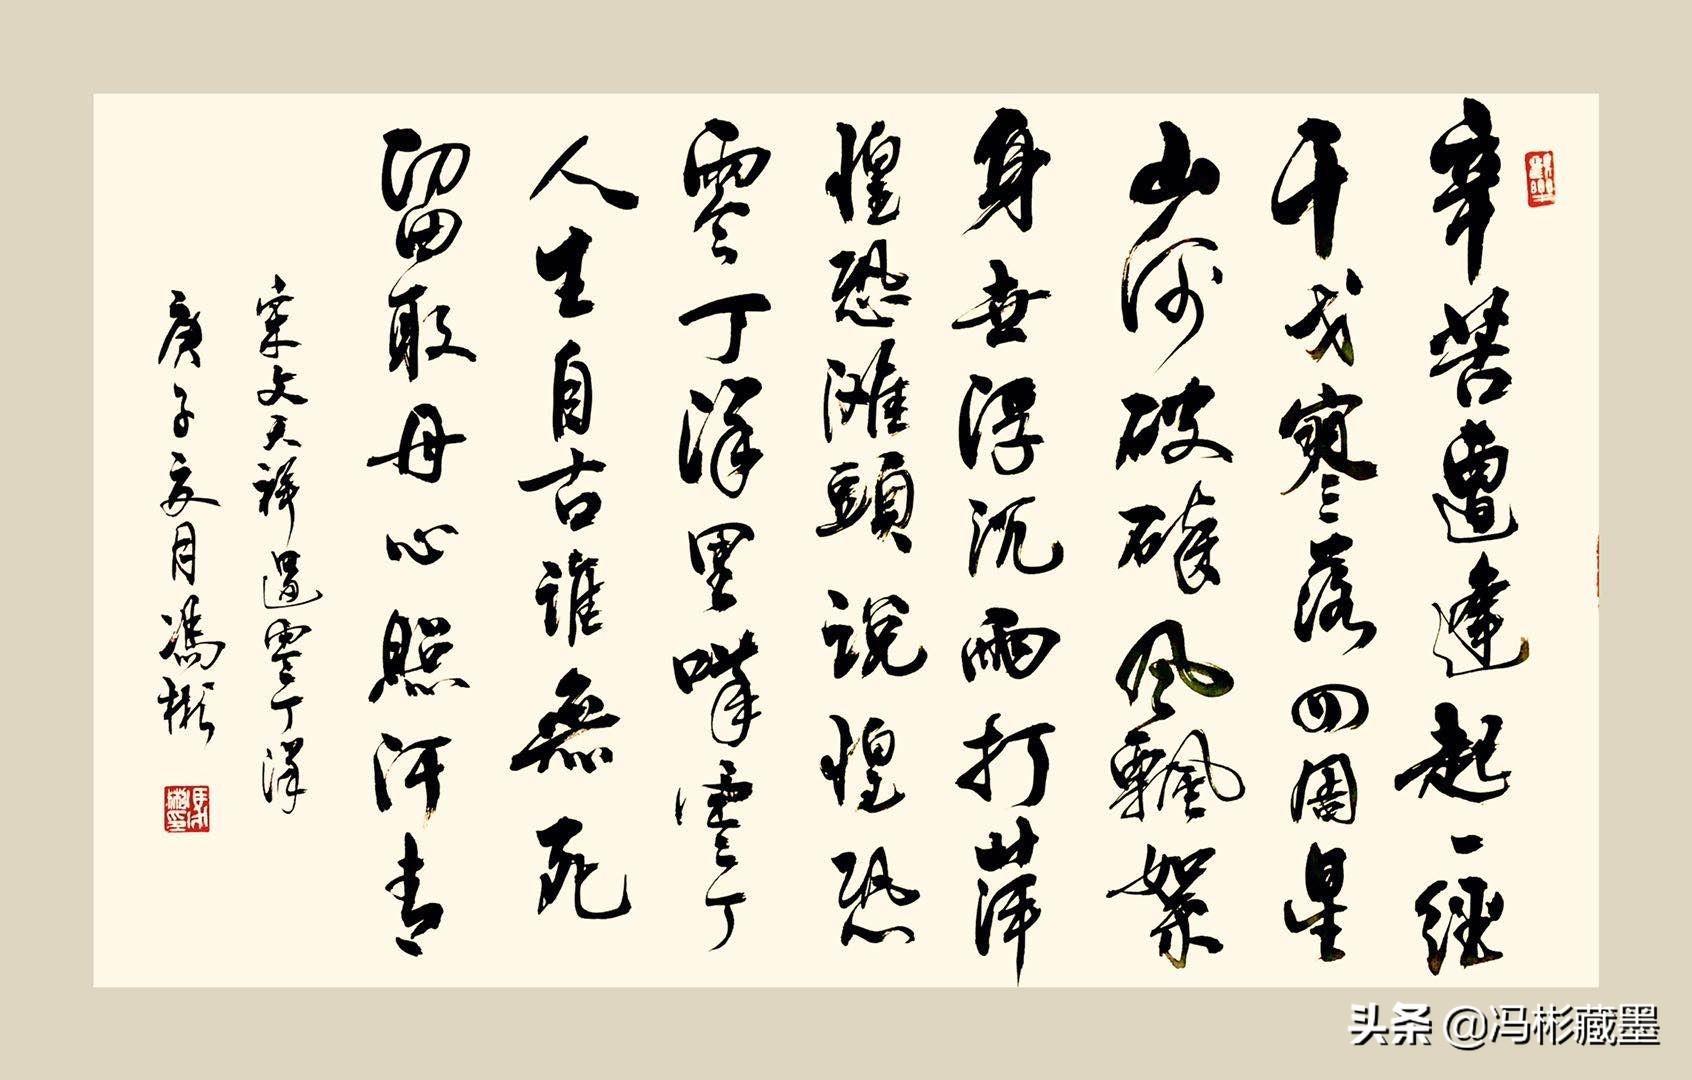 辛苦遭逢起一經
干戈寥落四周星
山河破碎風飄絮
身世浮沉雨打萍
惶恐灘頭說惶恐
零丁洋里嘆零丁
人生自古誰無死
留取丹心照汗青
宋文天祥過零丁洋
庚子夏月馮彬
头条 @冯彬藏墨